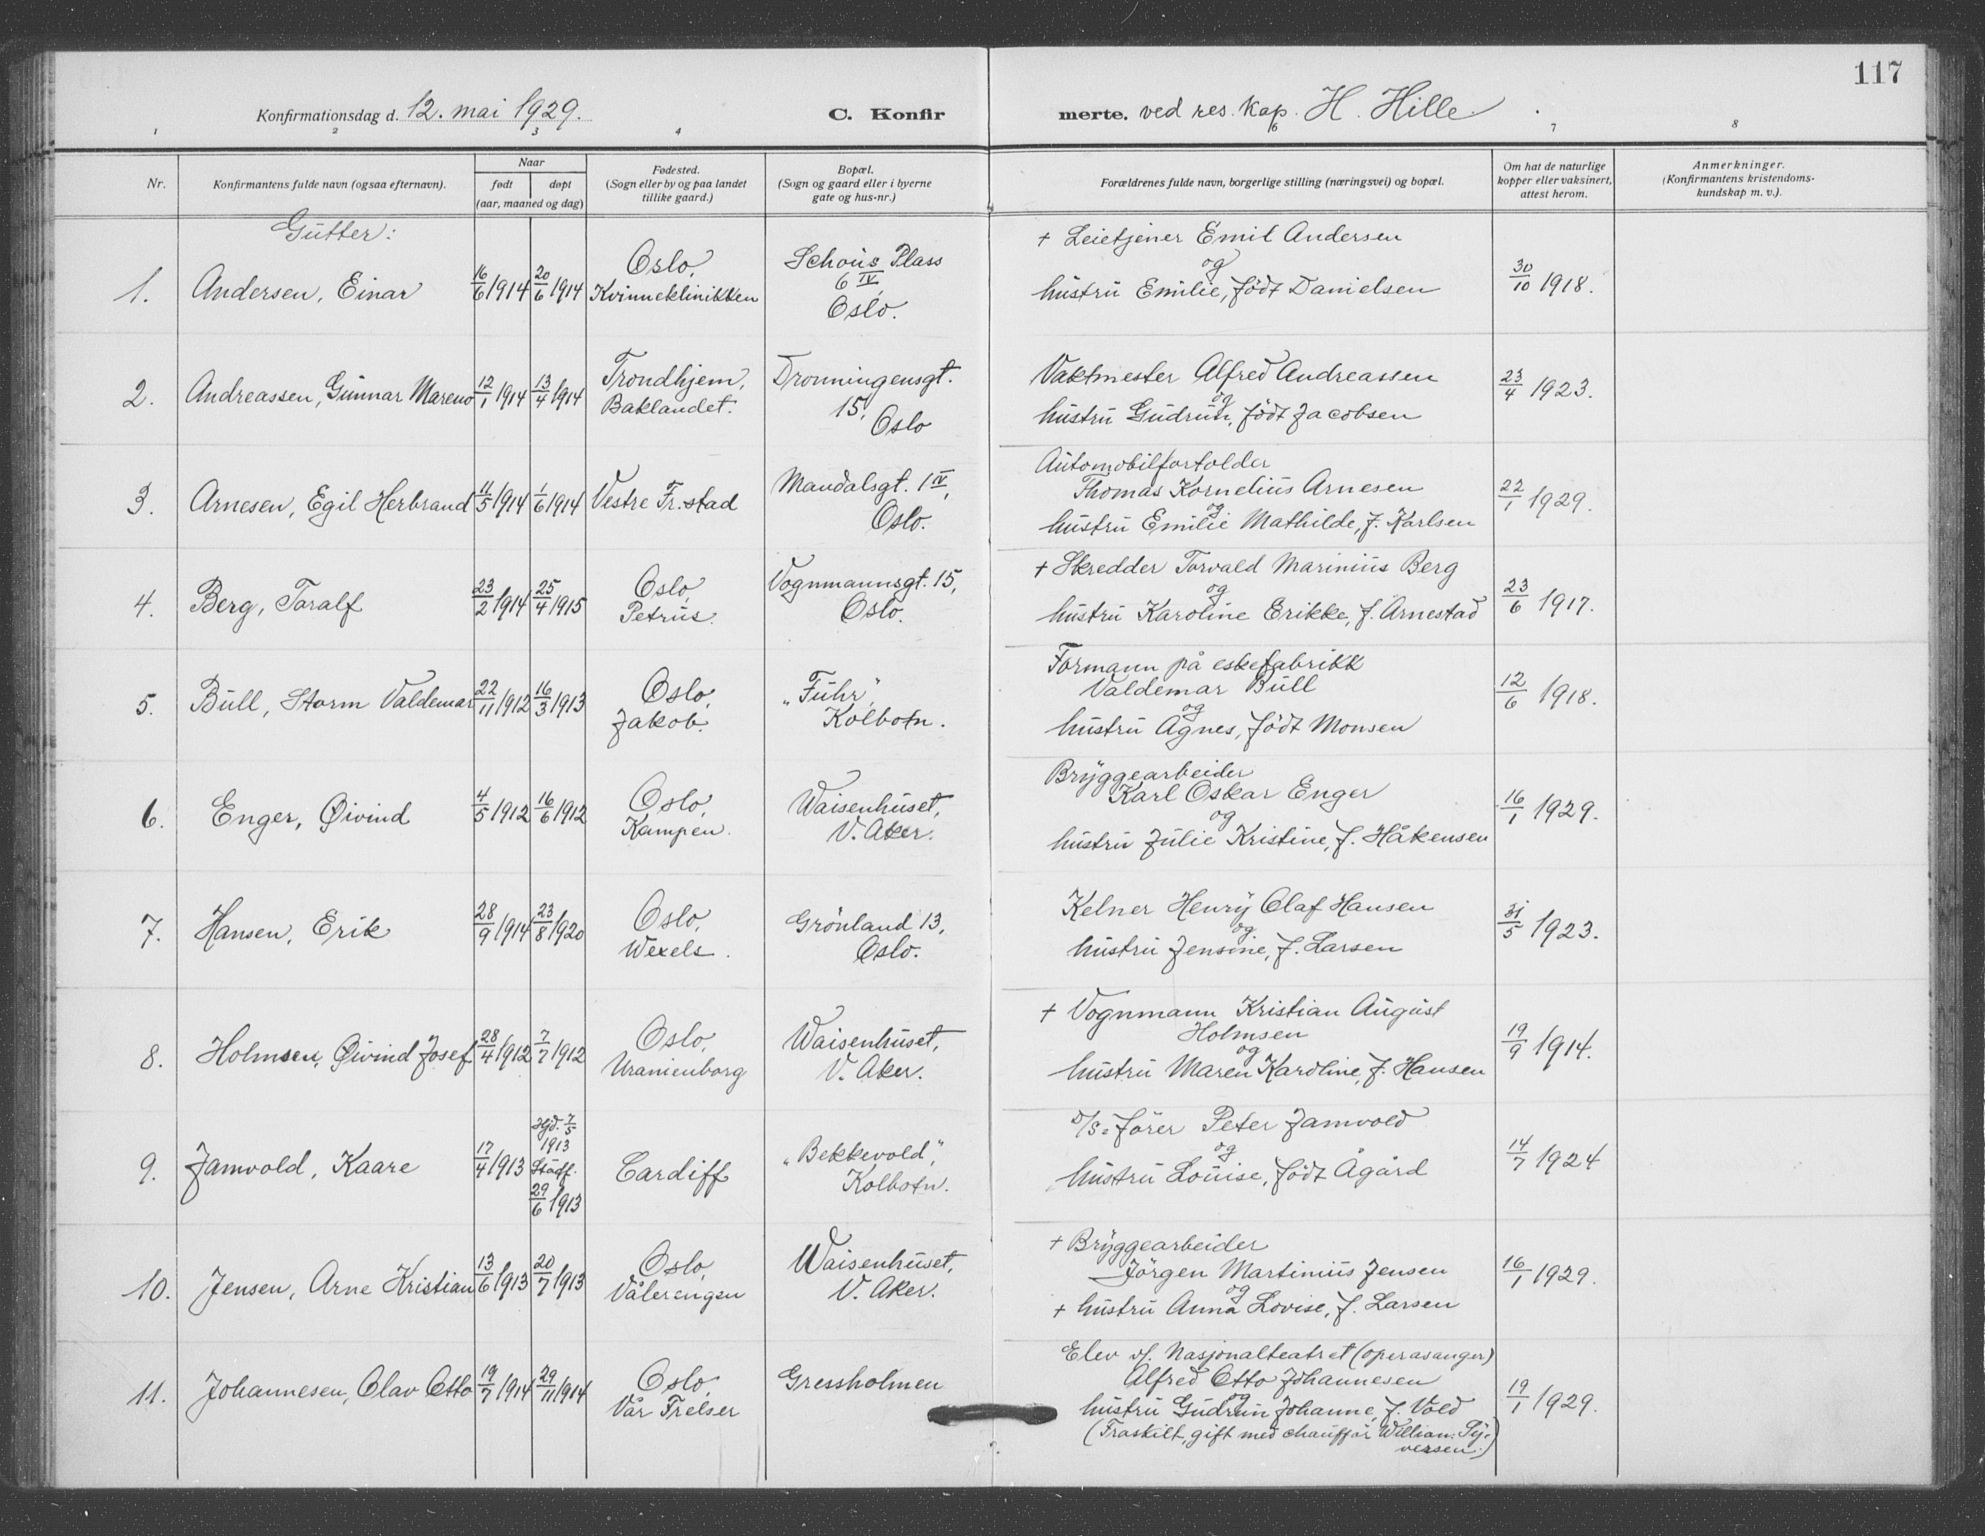 117
Konfirmationsdag d. 12. mai 1929.
C. Konfirmerte. ved res. kap. H. Hille
1 2 3 4 6 7 8
Nr.
Konfirmantens fulde navn (ogsaa efternavn).
Naar
født
døpt
(aar, maaned og dag)
Fødested.
(Sogn eller by og paa landet
tillike gaard.)
Bopæl.
(Sogn og gaard eller i byerne
gate og hus-nr.)
Forældrenes fulde navn, borgerlige stilling (næringsvei) og bopæl.
Om hat de naturlige
kopper eller vaksinert,
attest herom.
Anmerkninger.
(Konfirmantens kristendoms-
kundskap m. v.).
Gutter:
1. Andersen, Einar 16/6 1914 20/6 1914
Oslo,
Kvinneklinikken
Schous Plass
6 IV,
Oslo.
+ Leietjener Emil Andersen
og
hustru Emilie, født Danielsen
30/10 1918.
2. Andreassen, Gunnar Mareno 12/1 1914 13/4 1914
Trondhjem,
Baklandet.
Dronningensgt.
15,
Oslo
Vaktmester Alfred Andreassen
og
hustru Gudrun, født Jacobsen
23/4 1923.
3. Arnesen, Egil Herbrand 11/5 1914 1/6 1914
Vestre Fr.stad
Mandalsgt. 1 IV,
Oslo.
Automobilfortolder
Thomas Kornelius Arnesen
og
hustru Emilie Mathilde, f. Karlsen
22/1 1929.
4. Berg, Toralf 23/2 1914 25/4 1915
Oslo,
Petrus.
Vognmannsgt. 15,
Oslo.
+ Skredder Torvald Marinius Berg
og
hustru Karoline Erikke, f. Arnestad
23/6 1917.
5. Bull, Storm Valdemar 22/11 1912 16/3 1913
Oslo,
Jakob.
"Fuhr",
Kolbotn.
Formann på eskefabrikk
Valdemar Bull
og
hustru Agnes, født Monsen
12/6 1918.
6. Enger, Øivind 4/5 1912 16/6 1912
Oslo,
Kampen.
Waisenhuset,
V. Aker.
Bryggearbeider
Karl Oskar Enger
og
hustru Julie Kristine, f. Håkensen
16/1 1929.
7. Hansen, Erik 28/9 1914 23/8 1920
Oslo,
Wexels.
Grönland 13,
Oslo.
Kelner Henry Olaf Hansen
og
hustru Jensine, f. Larsen
31/5 1923.
8. Holmsen, Øivind Josef 28/4 1912 7/7 1912
Oslo,
Uranienborg
Waisenhuset,
V. Aker.
+ Vognmann Kristian August
Holmsen
og
hustru Maren Karoline, f. Hansen
19/9 1914.
9. Jamvold, Kaare 17/4 1913
hjd. 7/5
1913
Stadf.
29/6 1913
Cardiff
"Bekkevold",
Kolbotn.
D/S-förer Peter Jamvold
og
hustru Louise, født Ågård
14/7 1924
10. Jensen, Arne Kristian 13/6 1913 20/7 1913
Oslo,
Vålerengen
Waisenhuset,
V. Aker.
+ Bryggearbeider
Jörgen Martinius Jensen
og
+ hustru Anna Lovise, f. Larsen
16/1 1929.
11. Johannesen, Olav Otto 19/7 1914 29/11 1914
Oslo,
Vår Frelser
Gressholmen
Elev v. Nasjonalteatret (operasanger)
Alfred Otto Johannesen
og
hustru Gudrun Johanne, f. Vold
(Fraskilt, gift med chauffør William Sy-
versen.)
19/1 1929.